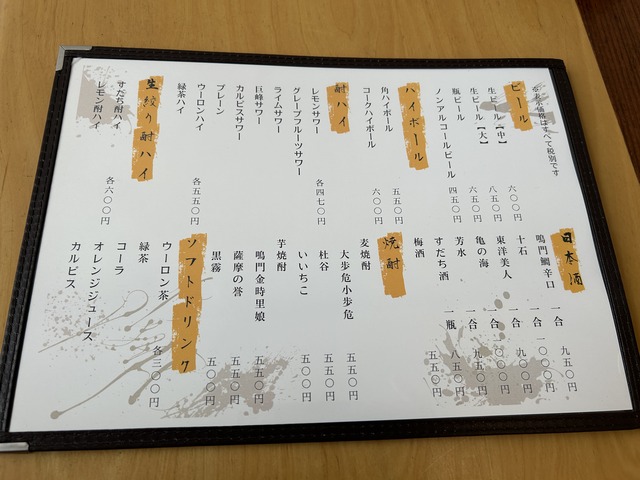 ※表示価格はすべて税別です
ビール
生ビール【中】 六〇〇円
生ビール【大】 八五〇円
瓶ビール 六五〇円
ノンアルコールビール 四五〇円
ハイボール
角ハイボール 五五〇円
コークハイボール 六〇〇円
酎ハイ
レモンサワー 各四七〇円
グレープフルーツサワー
ライムサワー
巨峰サワー
カルピスサワー
プレーン
ウーロンハイ 各五五〇円
緑茶ハイ
生絞り酎ハイ
すだち酎ハイ
レモン酎ハイ 各六〇〇円
日本酒
鳴門鯛辛口 一合 九五〇円
十石 一合 一〇〇〇円
東洋美人 一合
亀の海 一合 一〇〇〇円
芳水 一合 九五〇円
すだち酒 一瓶 八五〇円
梅酒 五五〇円
焼酎
麦焼酎
大歩危小歩危 五五〇円
杜谷 五五〇円
いいちこ 五〇〇円
芋焼酎
鳴門金時里娘 五五〇円
薩摩の誉 五五〇円
黒霧 五〇〇円
ソフトドリンク
ウーロン茶 各三〇〇円
緑茶
コーラ
オレンジジュース
カルピス